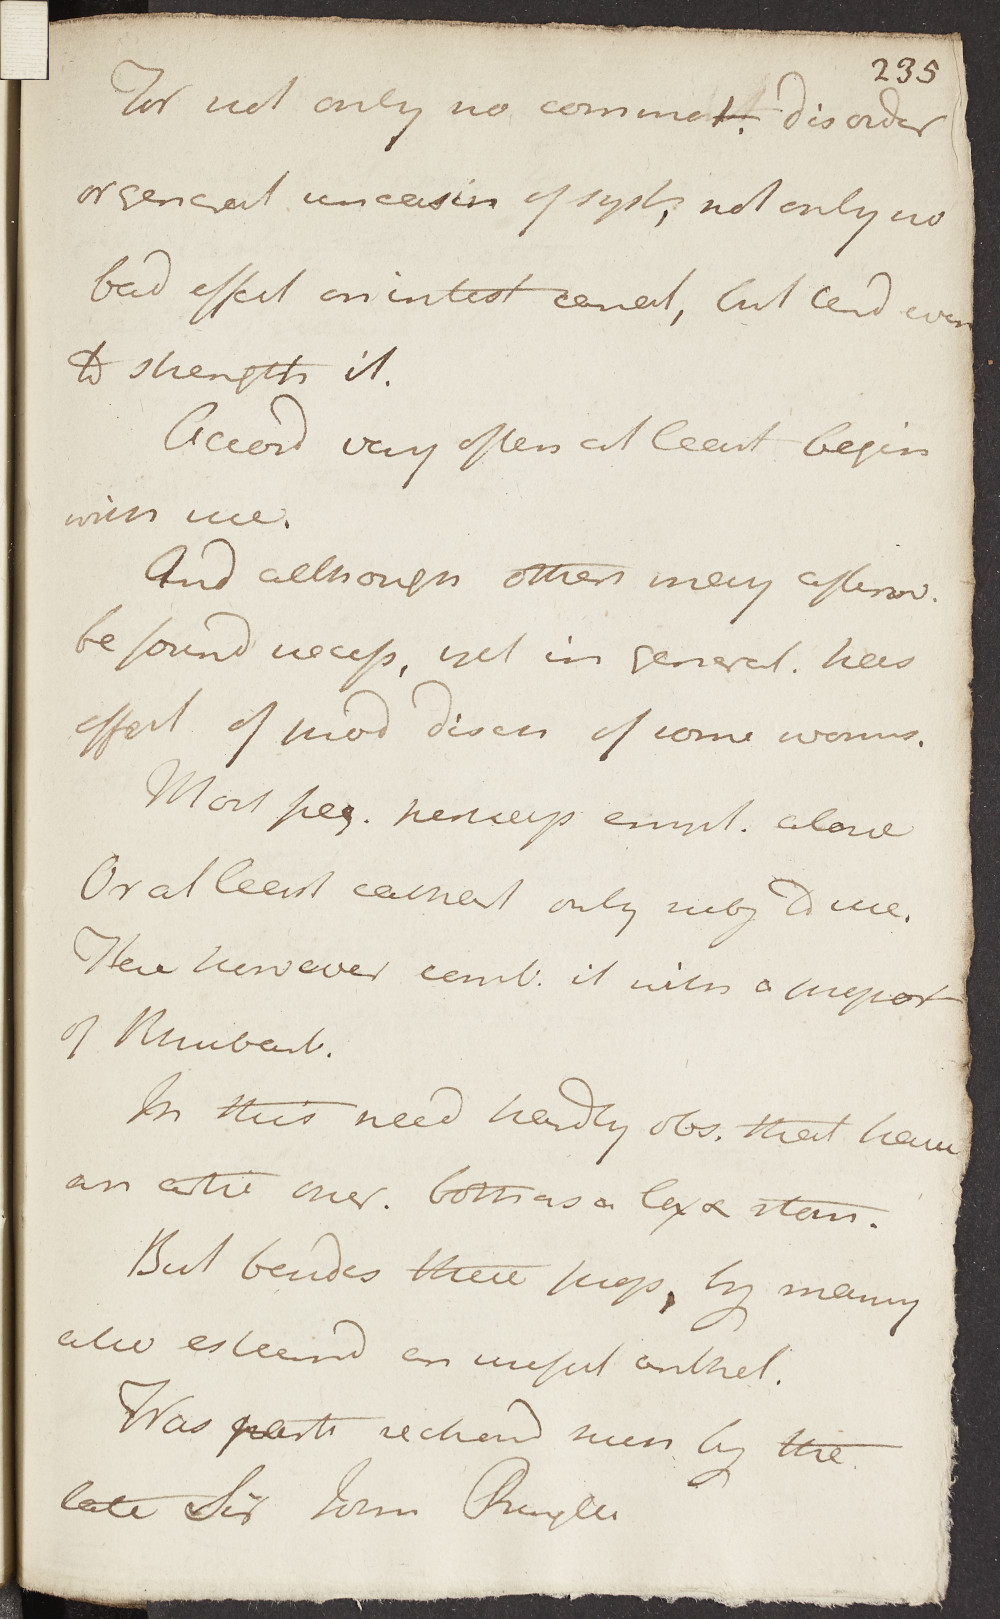 235
For not only no commot. disorder
or general uneasin of syst, not only no
bad effect on intest canal, but tend even
to strength it.
Accord very often at least begin
with me.
And although others may afterw.
be found necess, yet in general. has
effect of prod disch of some worms.
Most freq. perhaps empl. alone
Or at least cathart only subj to me.
Here however comb. it with a proport
of Rhubarb.
In this need hardly obs. that have
an active oner. both as a lax & stom.
But besides these purps, by many
also esteemd an useful anthel.
Was parti recomd such by the
late Sir John Pringle